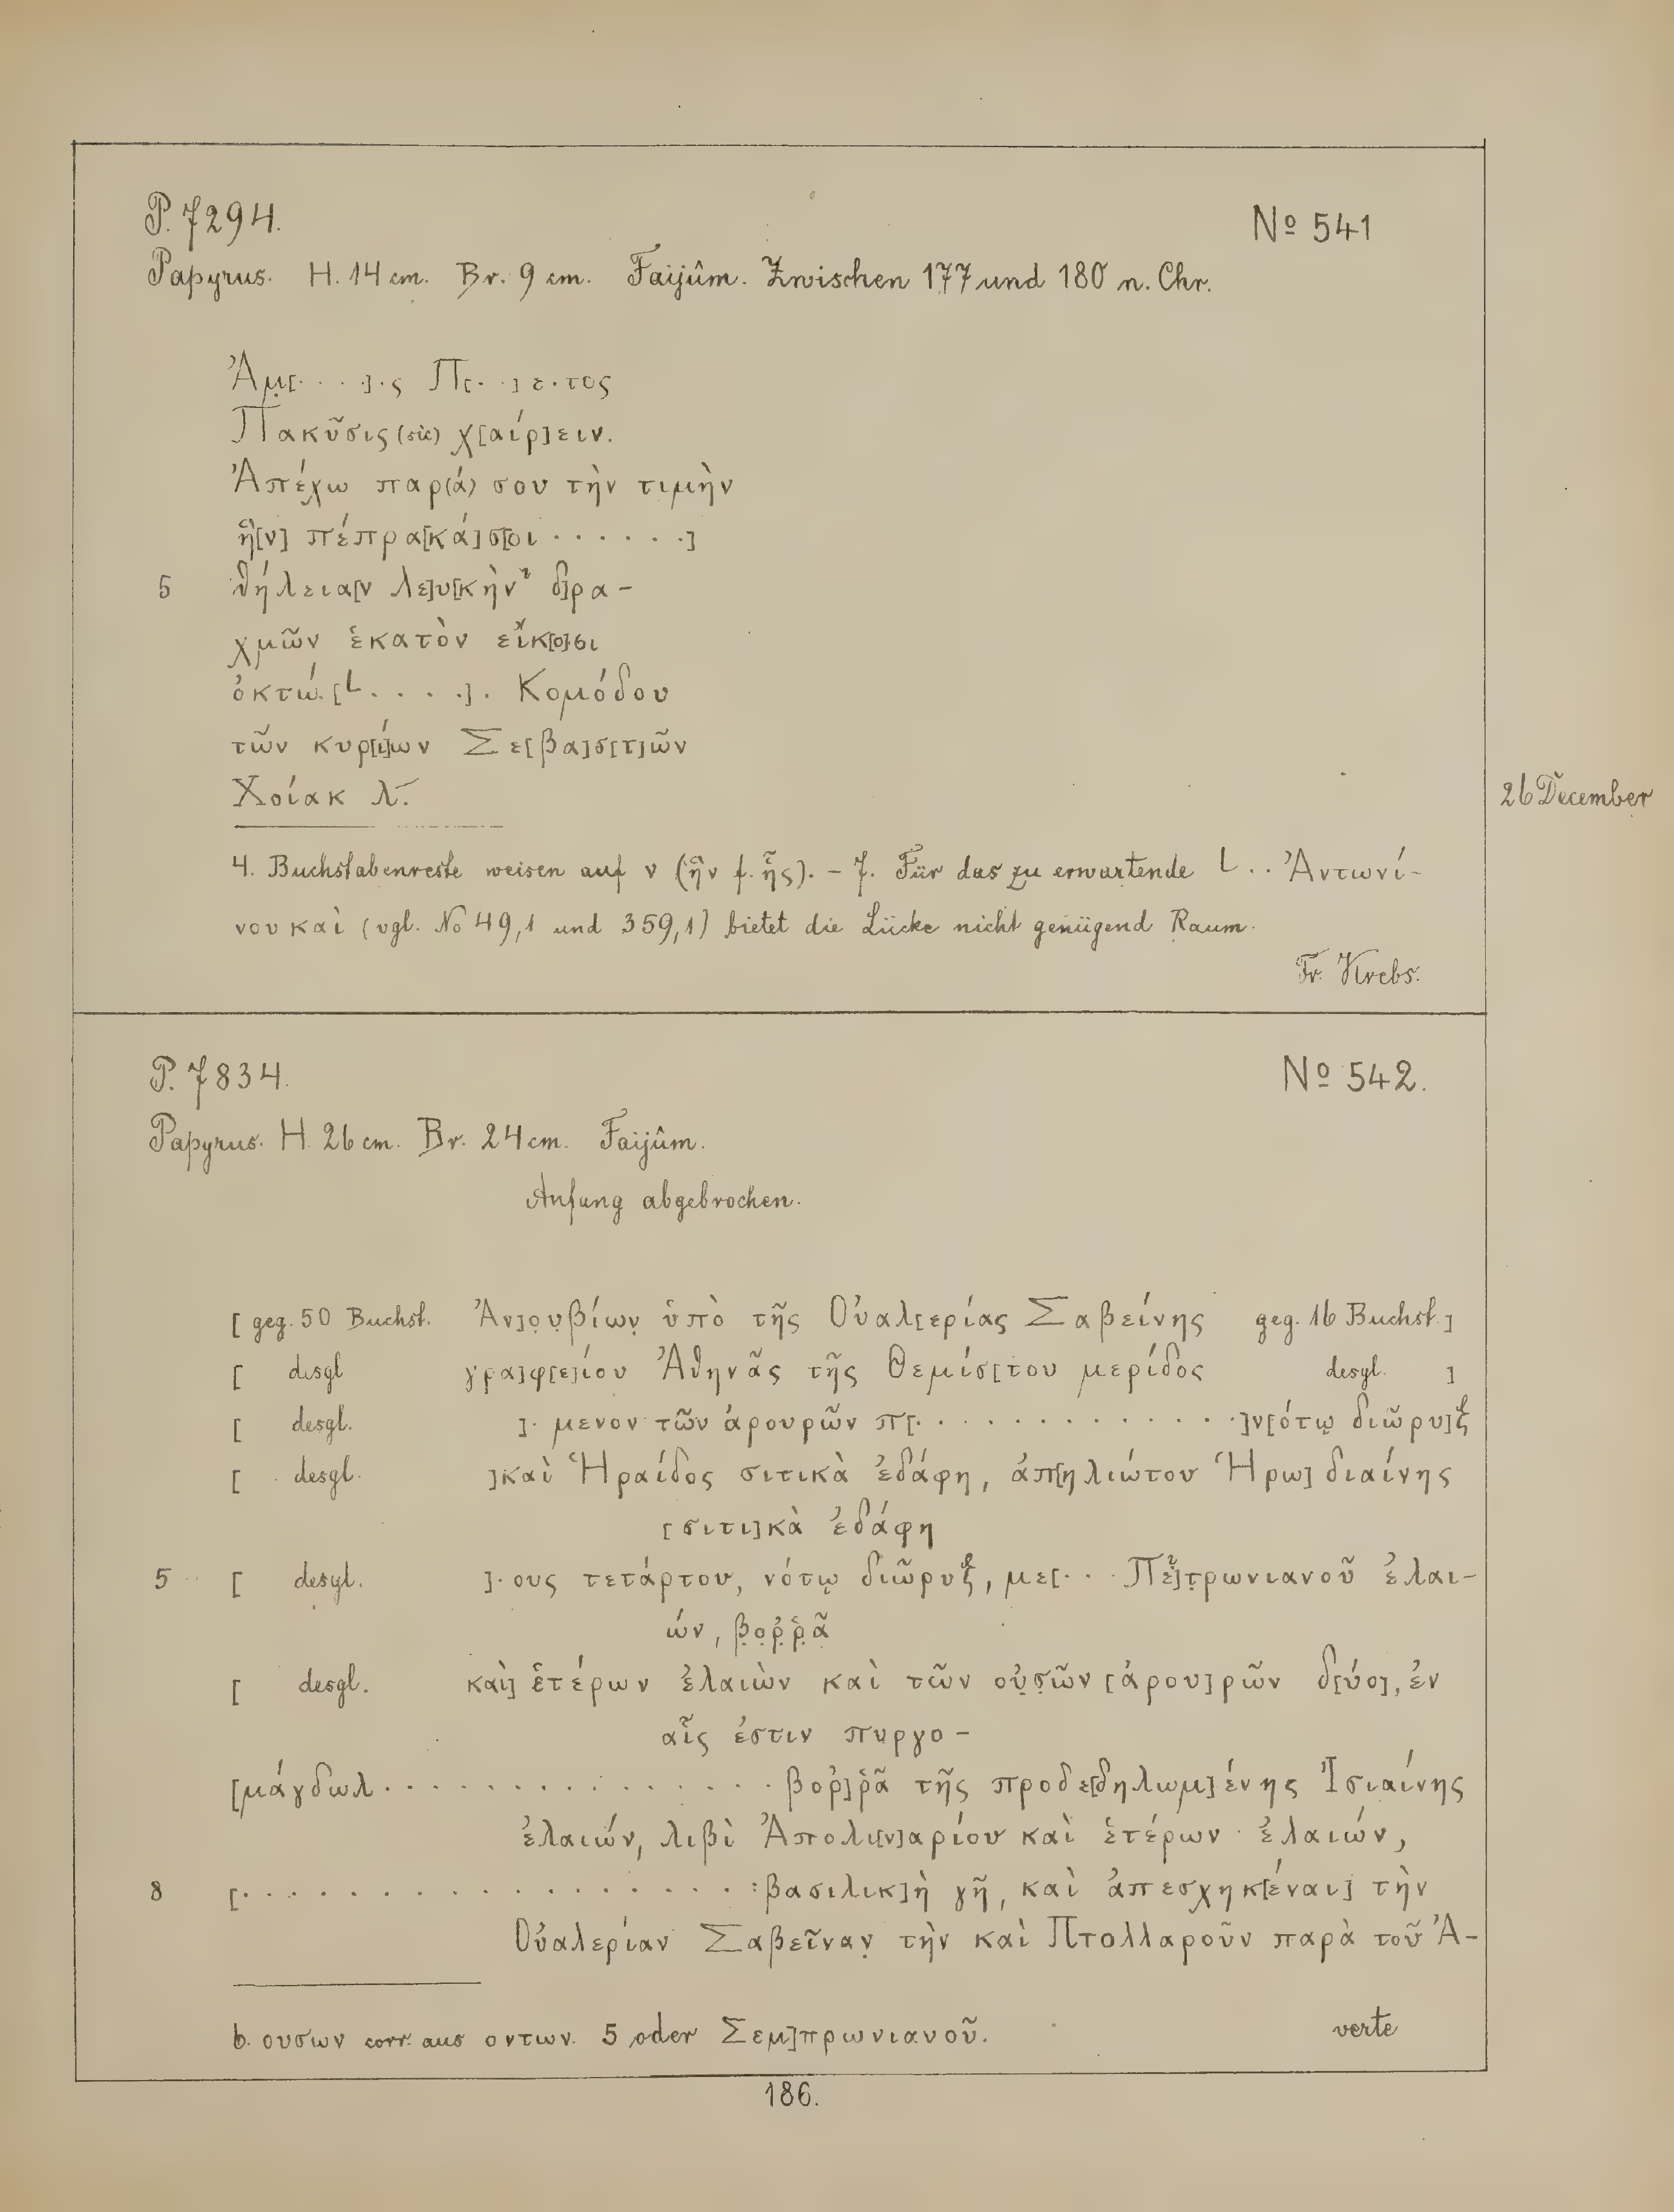 P. 7294. No 541
Papyrus. H. 14 cm. Br. 9 cm. Faijûm. Zwischen 177 und 180 n. Chr.
Ἀμ̣[· · · ·]·ς Π[· ·]ε·τος
Πακῦσις (sic) χ[αίρ]ειν.
Ἀπέχω παρ(ά) σου τὴν τιμὴν
ἣ[ν] πέπρα[κά] σ[οι · · · · · ·]
5 θήλεια[ν λε]υ[κὴν? δ]ρα-
χμῶν ἑκατὸν εἴκ[ο]σι
ὀκτώ. [L . . . .]. Κομόδου
τῶν κυρ[ί]ων Σε[βα]σ[τ]ῶν
Χοίακ λ̅. 26 December
4. Buchstabenreste weisen auf ν (ἣν f. ἧς). - 7. Für das zu erwartende L . . Ἀντωνί-
νου καὶ (vgl. No 49,1 und 359,1) bietet die Lücke nicht genügend Raum.
Fr. Krebs.
P. 7834. No 542.
Papyrus. H. 26 cm. Br. 24 cm. Faijûm.
Anfang abgebrochen.
[ geg. 50 Buchst. Ἀν]ο̣υ̣βίων̣ ὑπὸ τῆς Οὐαλ[ερίας Σαβείνης geg. 16 Buchst.]
[ desgl γρα]φ[ε]ίου Ἀθηνᾶς τῆς Θεμίσ[του μερίδος desgl. ]
[ desgl. ]· μενον τῶν ἀρουρῶν π[· · · · · · · · · · · · ·]ν[ότῳ διῶρυ]ξ
[ desgl. ]καὶ Ἡραίδος σιτικὰ ἐδάφη, ἀπ[ηλιώτου Ἡρω]διαίνης
[σιτι]κὰ ἐδάφη
5 [ desgl. ]· ους τετάρτου, νότῳ διῶρυξ, με[· · · Πε?]τ̣ρωνιανοῦ ἐλαι-
ών, β̣ο̣ρ̣ρ̣ᾶ
[ desgl. καὶ] ἑτέρων ἐλαιὼν καὶ τῶν οὐ̣σ̣ῶν [ἀρου]ρῶν δ[ύο], ἐν
αἷς ἐστιν πυργο-
[μάγδωλ · · · · · · · · · · · · · · · βορ]ρᾶ τῆς προδε[δηλωμ]ένης Ἰσιαίνης
ἐλαιών, λιβὶ Ἀπολι[ν]αρίου καὶ ἑτέρων ἐλαιών,
8 [· · · · · · · · · · · · · · · · · · : βασιλικ]ὴ γῆ, καὶ ἀπεσχηκ[έναι] τὴν
Οὐαλερίαν Σαβεῖναν̣ τὴν καὶ Πτολλαροῦν παρὰ τοῦ Ἀ-
6. ουσων corr. aus οντων. 5 oder Σεμ]πρωνιανοῦ. verte
186.